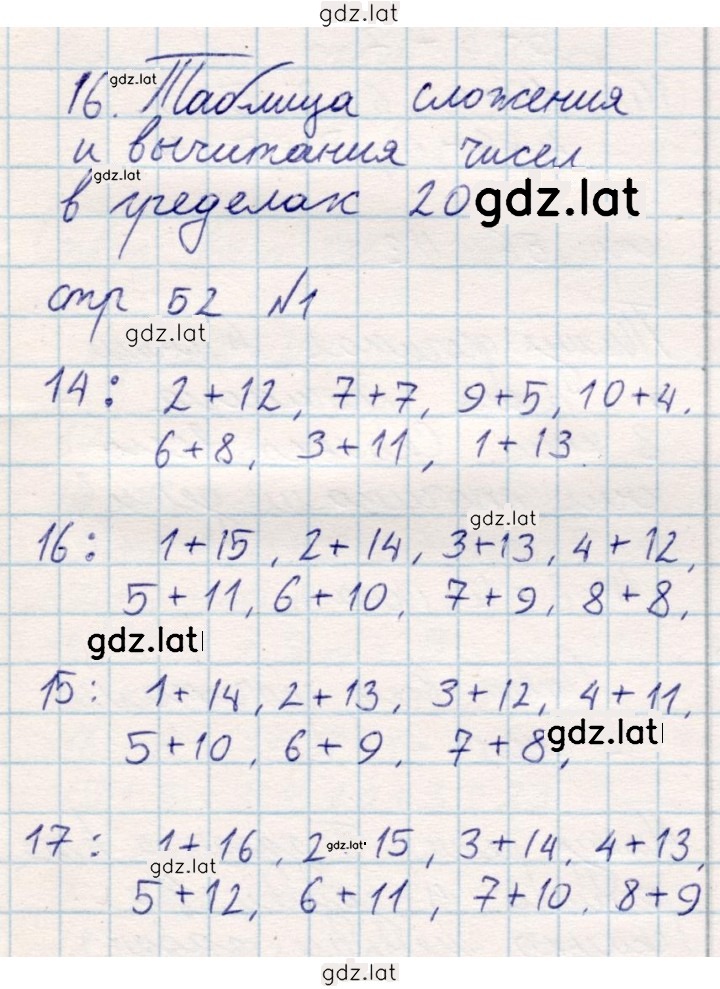 gdz.lat
gdz.lat
16. Таблица сложения
и вычитания чисел
gdz.lat
в пределах 20 gdz.lat
стр 52 №1
gdz.lat
14: 2+12, 7+7, 9+5, 10+4.
6+8, 3+11, 1+13
gdz.lat
16: 1+15, 2+14, 3+13, 4+12,
5+11, 6+10, 7+9, 8+8,
gdz.lat
15: 1+14, 2+13, 3+12, 4+11,
5+10, 6+9, 7+8, gdz.lat
17: 1+16, 2 gdz.lat 15, 3+14, 4+13,
gdz.lat
5+12, 6+11, 7+10, 8+9
gdz.lat